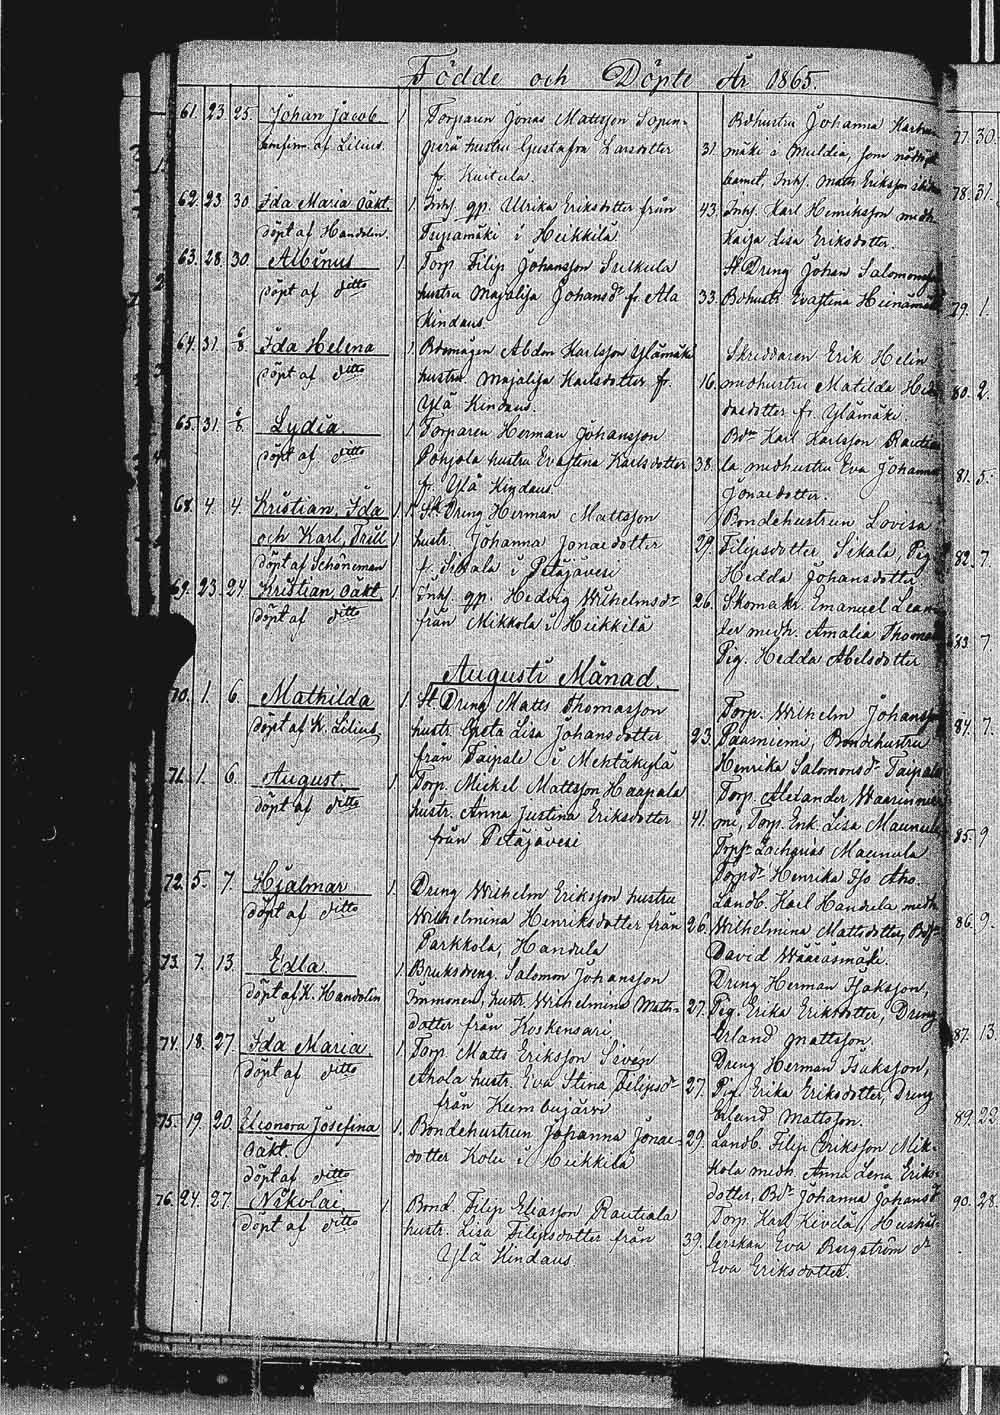 Födde och Döpte År 1865.
61. 23. 25. Johan Jacob 1 Torparen Jonas Mattsson Sopen- Bdhustru Johanna
af Lilius. perä hustru Gustafva Larsdotter 31. mäki i Muldia, som nöddöpt
fr. Kuitula. barnet, Inhs. Matts Eriksson
62. 23 30 Ida Maria Oäkt. 1 Inhs. qp. Ulrika Eriksdotter från 43. Inhs. Karl Henriksson medh.
döpt af Handolin. i Heikkilä Kaija Lisa Eriksdotter.
63. 28. 30. Albinus 1. Torp. Filip Johansson Sulkula St. Dreng Johan
döpt af ditto hustru Majalisa Johansdr fr. Ala 33. Bdhustr. Evastina
Kindaus.
64. 31. 6/8. Ida Helena 1 Bdemågen Abdon Karlsson Ylämäki Skreddaren Erik Helin
döpt af ditto hustru Majalisa Karlsdotter fr. 16. medhustru Matilda
Ylä Kindaus. dotter fr. Ylämäki.
65. 31. 6/8. Lydia 1 Torparen Herman Johansson Bdn Karl Karlsson
döpt af ditto Pohjola hustru Evastina Karlsdotter 38. la medhustru Eva Johanna
fr. Ylä Kindaus. Jonaedotter.
68. 4. 4. Kristian, Ida 1 St. Dreng Herman Mattsson Bondehustrun Lovisa
och Karl, Trill 1 hustr. Johanna Jonaedotter 29. Filipsdotter Sikala, Pig.
döpt af Schöneman f. Sikala i Petäjävesi Hedda Johansdotter
69. 23. 24. Kristian, Oäkt. 1 Inhs. qp. Hedvig Wilhelmsdr 26. Skomakr. Emanuel
döpt af ditto från Mikkola i Heikkilä ler medh. Amalia
Pig. Hedda Abelsdotter
Augusti Månad.
70. 1. 6. Mathilda 1. St. Dreng Matts Thomasson Torp. Wilhelm
döpt af K. Lilius hustr. Greta Lisa Johansdotter 23. Paasniemi, Bondehustru
från Taipale i Mehtäkylä Henrika Salomonsdr Taipale
71. 1. 6. August. 1 Torp. Mickel Mattsson Haapala Torp. Alexander
döpt af ditto hustr. Anna Justina Eriksdotter 41. mi, Torp. Enk. Lisa Maunula
från Petäjävesi Zacharias Maunula
Henrika
72. 5. 7. Hjalmar 1. Dreng Wilhelm Eriksson hustru Landb. Karl Handula medh.
döpt af ditto Wilhelmina Henriksdotter från 26. Wilhelmina Mattsdotter,
Parkkola, Handula David
73. 7. 13. Edla 1. Bruksdreng. Salomon Johansson Dreng Herman Isaksson,
döpt af K. Handolin Immonen, hustr. Wilhelmina Matts- 27. Pig. Erika Eriksdotter, Dreng
dotter från Koskensari Erland Mattsson.
74. 18. 27. Ida Maria 1. Torp. Matts Eriksson Siven Dreng Herman Isaksson,
döpt af ditto Ahola hustr. Eva Stina Filipsdr 27. Pig. Erika Eriksdotter, Dreng
från Kumbujärvi Erland Mattsson.
75. 19. 20. Eleonora Josefina 1. Bondehustrun Johanna Jonae- 29. Landb. Filip Eriksson Mik-
Oäkt. dotter Kolu i Heikkilä kola medh. Anna Lena Eriks-
döpt af ditto dotter, Bdr Johanna
76. 24. 27. Nikolai 1. Bond. Filip Eliasson Rautiala Torp. Karl Kivelä, Hushål-
döpt af ditto hustr. Lisa Filipsdotter från 39. lerskan Eva Bergström dr
Ylä Kindaus Eva Eriksdotter.
77. 30.
78. 31.
79. 1.
80. 2.
81. 5.
82. 7.
83. 7.
84. 7.
85. 9
86. 9.
87. 13.
89. 22
90. 28.